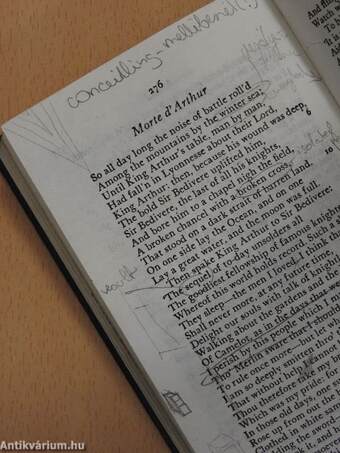 conceilling - mellébeszél(?)
276
Morte d'Arthur
So all day long the noise of battle roll'd
Among the mountains by the winter sea;
Until King Arthur's table, man by man,
Had fall'n in Lyonnesse about their Lord,
King Arthur: then, because his wound was deep,
The bold Sir Bedivere uplifted him, 6
Sir Bedivere, the last of all his knights,
And bore him to a chapel nigh the field,
A broken chancel with a broken cross,
That stood on a dark strait of barren land. 10
On one side lay the Ocean, and on one
Lay a great water, and the moon was full.
Then spake King Arthur to Sir Bedivere:
The sequel of to-day unsolders all
The goodliest fellowship of famous knights
Whereof this world holds record. Such a
They sleep—the men I loved. I think
Shall never more, at any future time,
Delight our souls with talk of knight
Walking about the gardens and
Of Camelot, as in the days that w
I perish by this people which I m
Tho' Merlin sware that I shoul
To rule once more—but
I am so deeply smitten thro'
That without help I
Thou therefore take my b
Which was my pride: f
In those old days, one s
Rose up from out the
Clothed in white
Holding the sword
Watch w
To
And
Antikvárium.hu